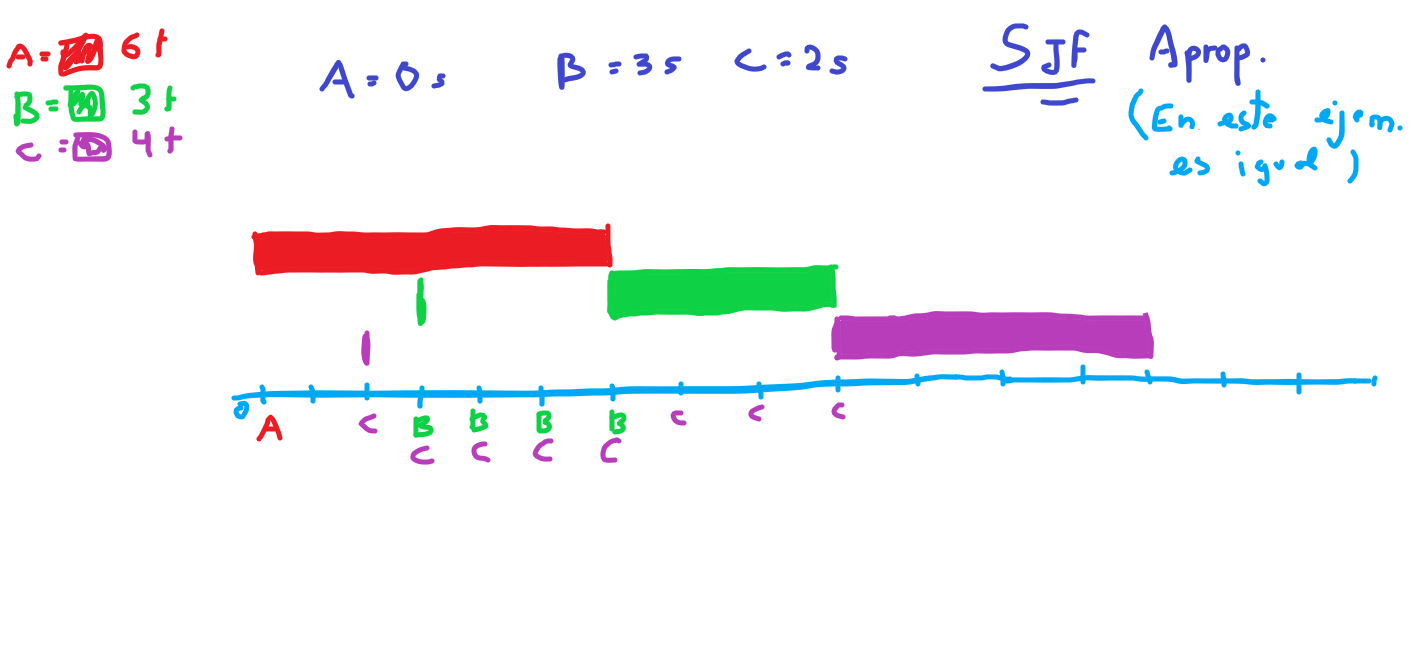 A= 6 t
B= 3 t
C= 4 t
A= 0 s B=3 s C=2 s
SJF Aprop.
(En este ejem.
es igual)
0
A C B B B B C C C
C C C C